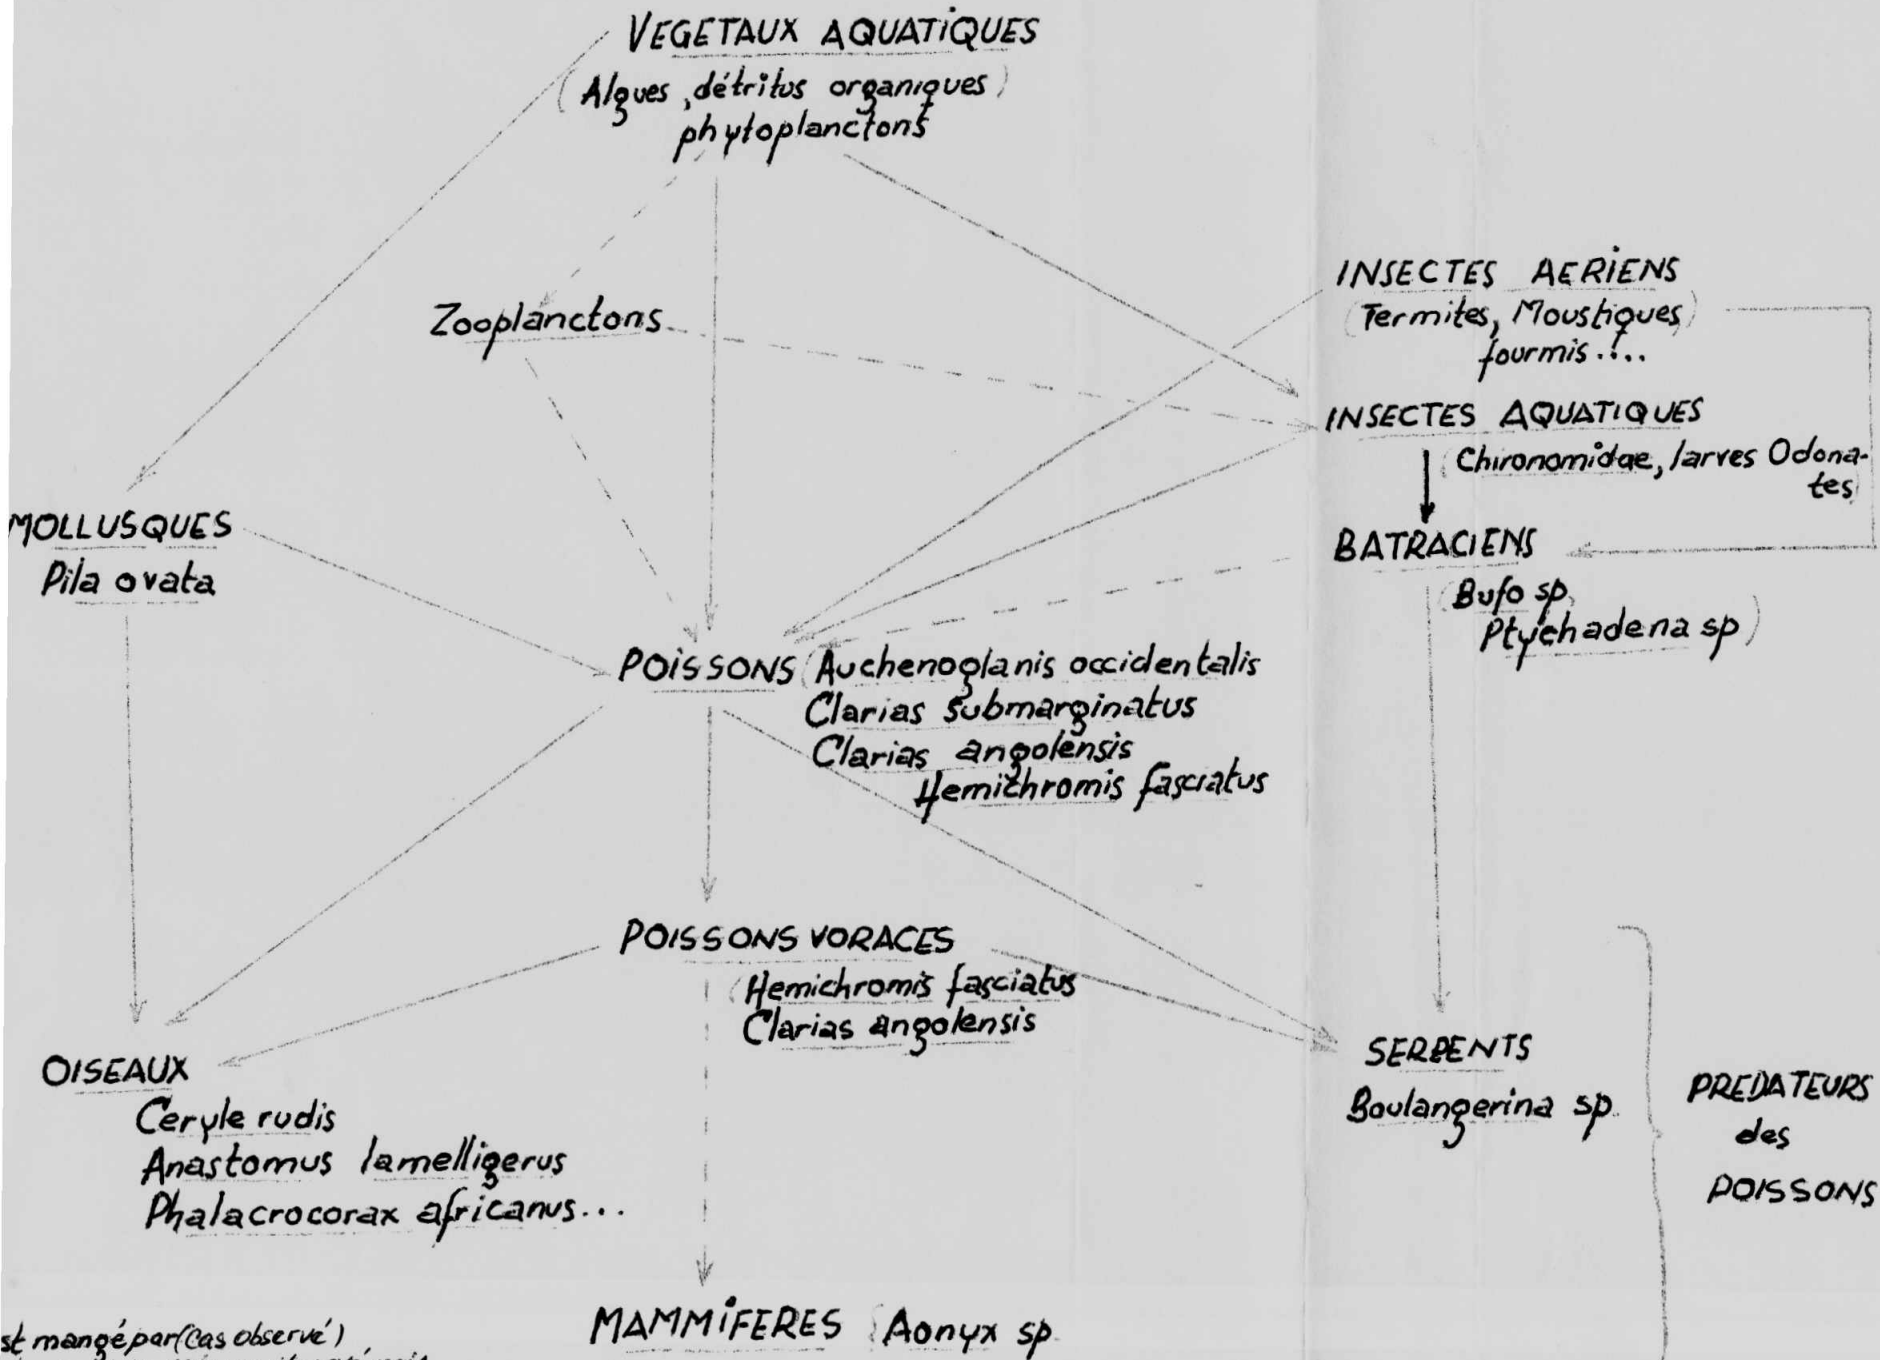 VEGETAUX AQUATIQUES
(Algues, détritus organiques)
phytoplanctons
INSECTES AERIENS
(Termites, Moustiques)
fourmis....
Zooplanctons
INSECTES AQUATIQUES
(Chironomidae, larves Odona-
tes)
MOLLUSQUES
Pila ovata
BATRACIENS
(Bufo sp,
Ptychadena sp)
POISSONS (Auchenoglanis occidentalis
Clarias submarginatus
Clarias angolensis
Hemichromis fasciatus
POISSONS VORACES
(Hemichromis fasciatus
Clarias angolensis
OISEAUX
Ceryle rudis
Anastomus lamelligerus
Phalacrocorax africanus...
SERPENTS
Boulangerina sp.
PREDATEURS
des
POISSONS
MAMMIFERES (Aonyx sp.
st mangé par (cas observé)